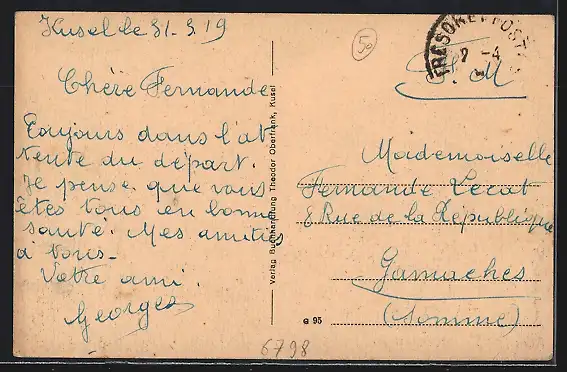 Kusel le 31-3.19
Chère Fernande
Toujours dans l'at
tente du départ.
Je pense que vous
êtes tous en bonne
santé. Mes amitiés
à tous-
Votre ami.
Georges
Verlag Buchhandlung Theodor Oberfrank, Kusel
50
TRESOR ET POSTES
2 -4
F. M
Mademoiselle
Fernande Lecat
8 Rue de la République
Gamaches
(Somme)
G 95
6798